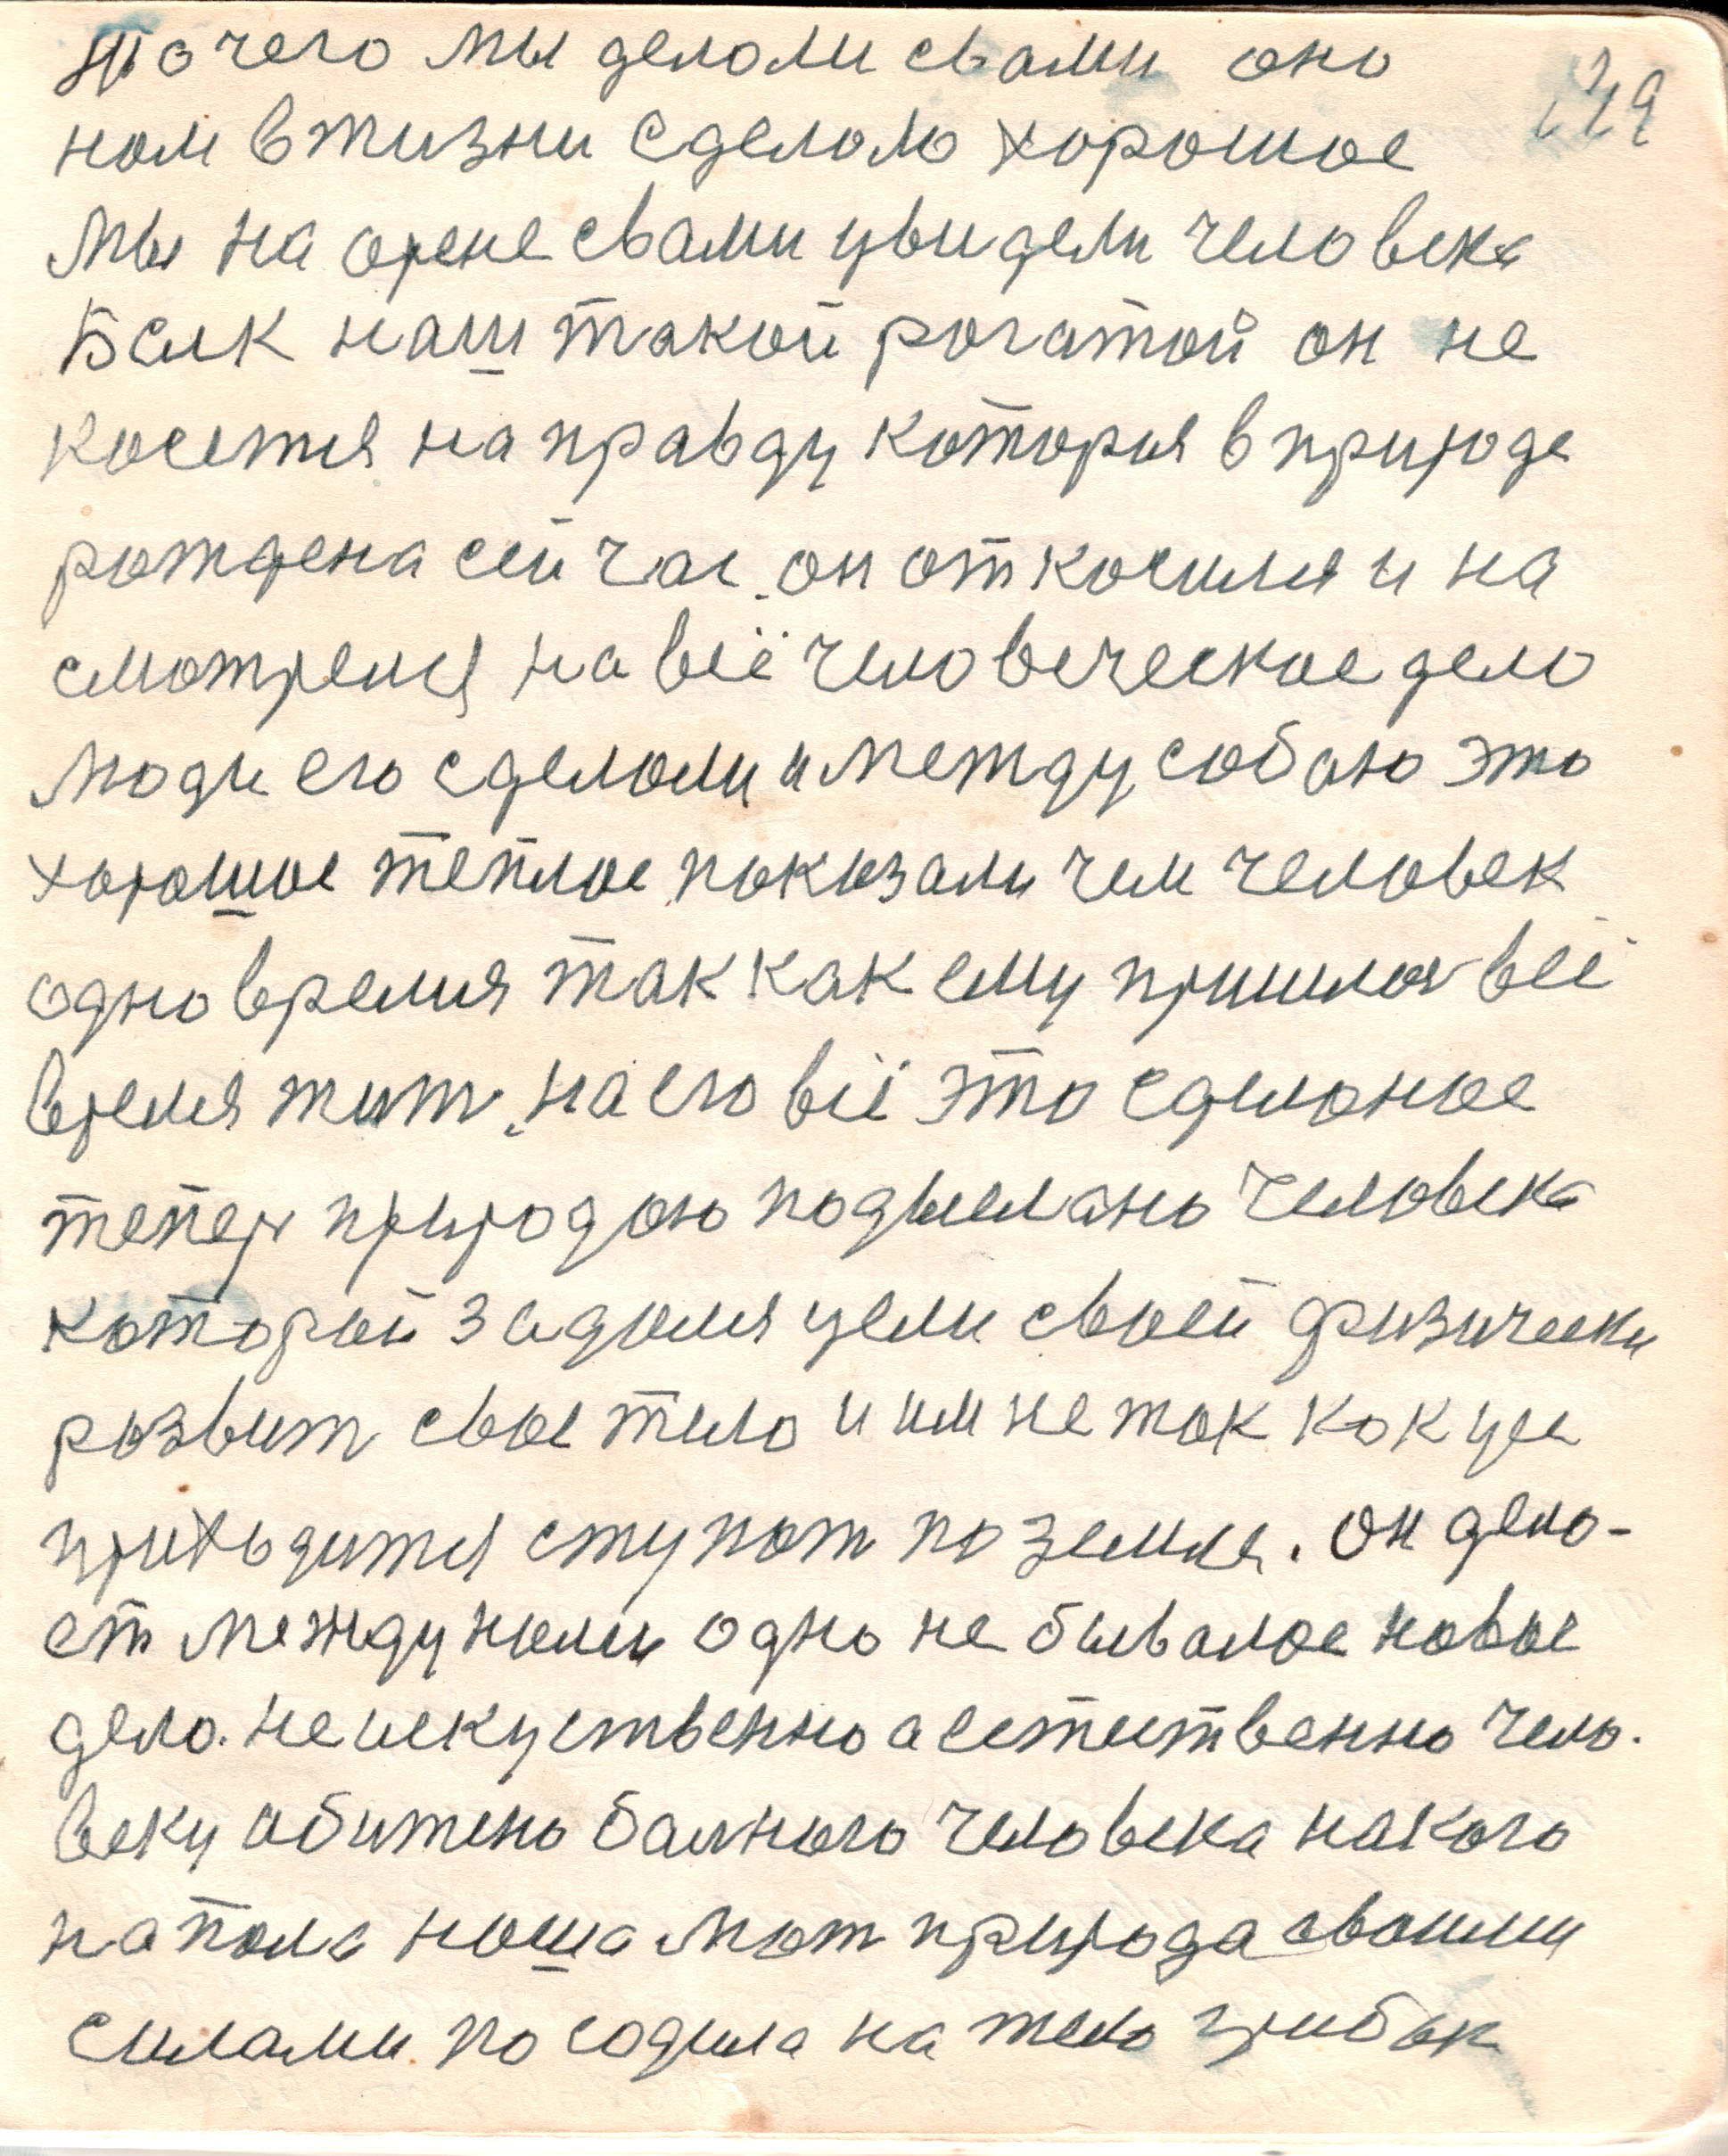 То чего мы делоли свами оно
129
нам в жизни сделоло хорошое
мы на арене свами увидели человека
Бык наш такой рогатой он не
косется на правду которая в природе
рождена сейчас он откосился и на
смотрелся на всё человеческое дело
люди его сделоли и между собою это
хорошое теплое показали чем человек
одно время так как ему пришлось всё
время жит на его всё это сделоное
тепер природою подыскано человека
которой задался цели своей физически
розвит свое тело и им не так как усе
приходится ступат по земле. он дело-
ет между нами одно не бывалое новое
дело. не искуственно а естественно чело-
веку обижено балного человека на кого
напала наша мат природа своими
силами посодила на тело грибок